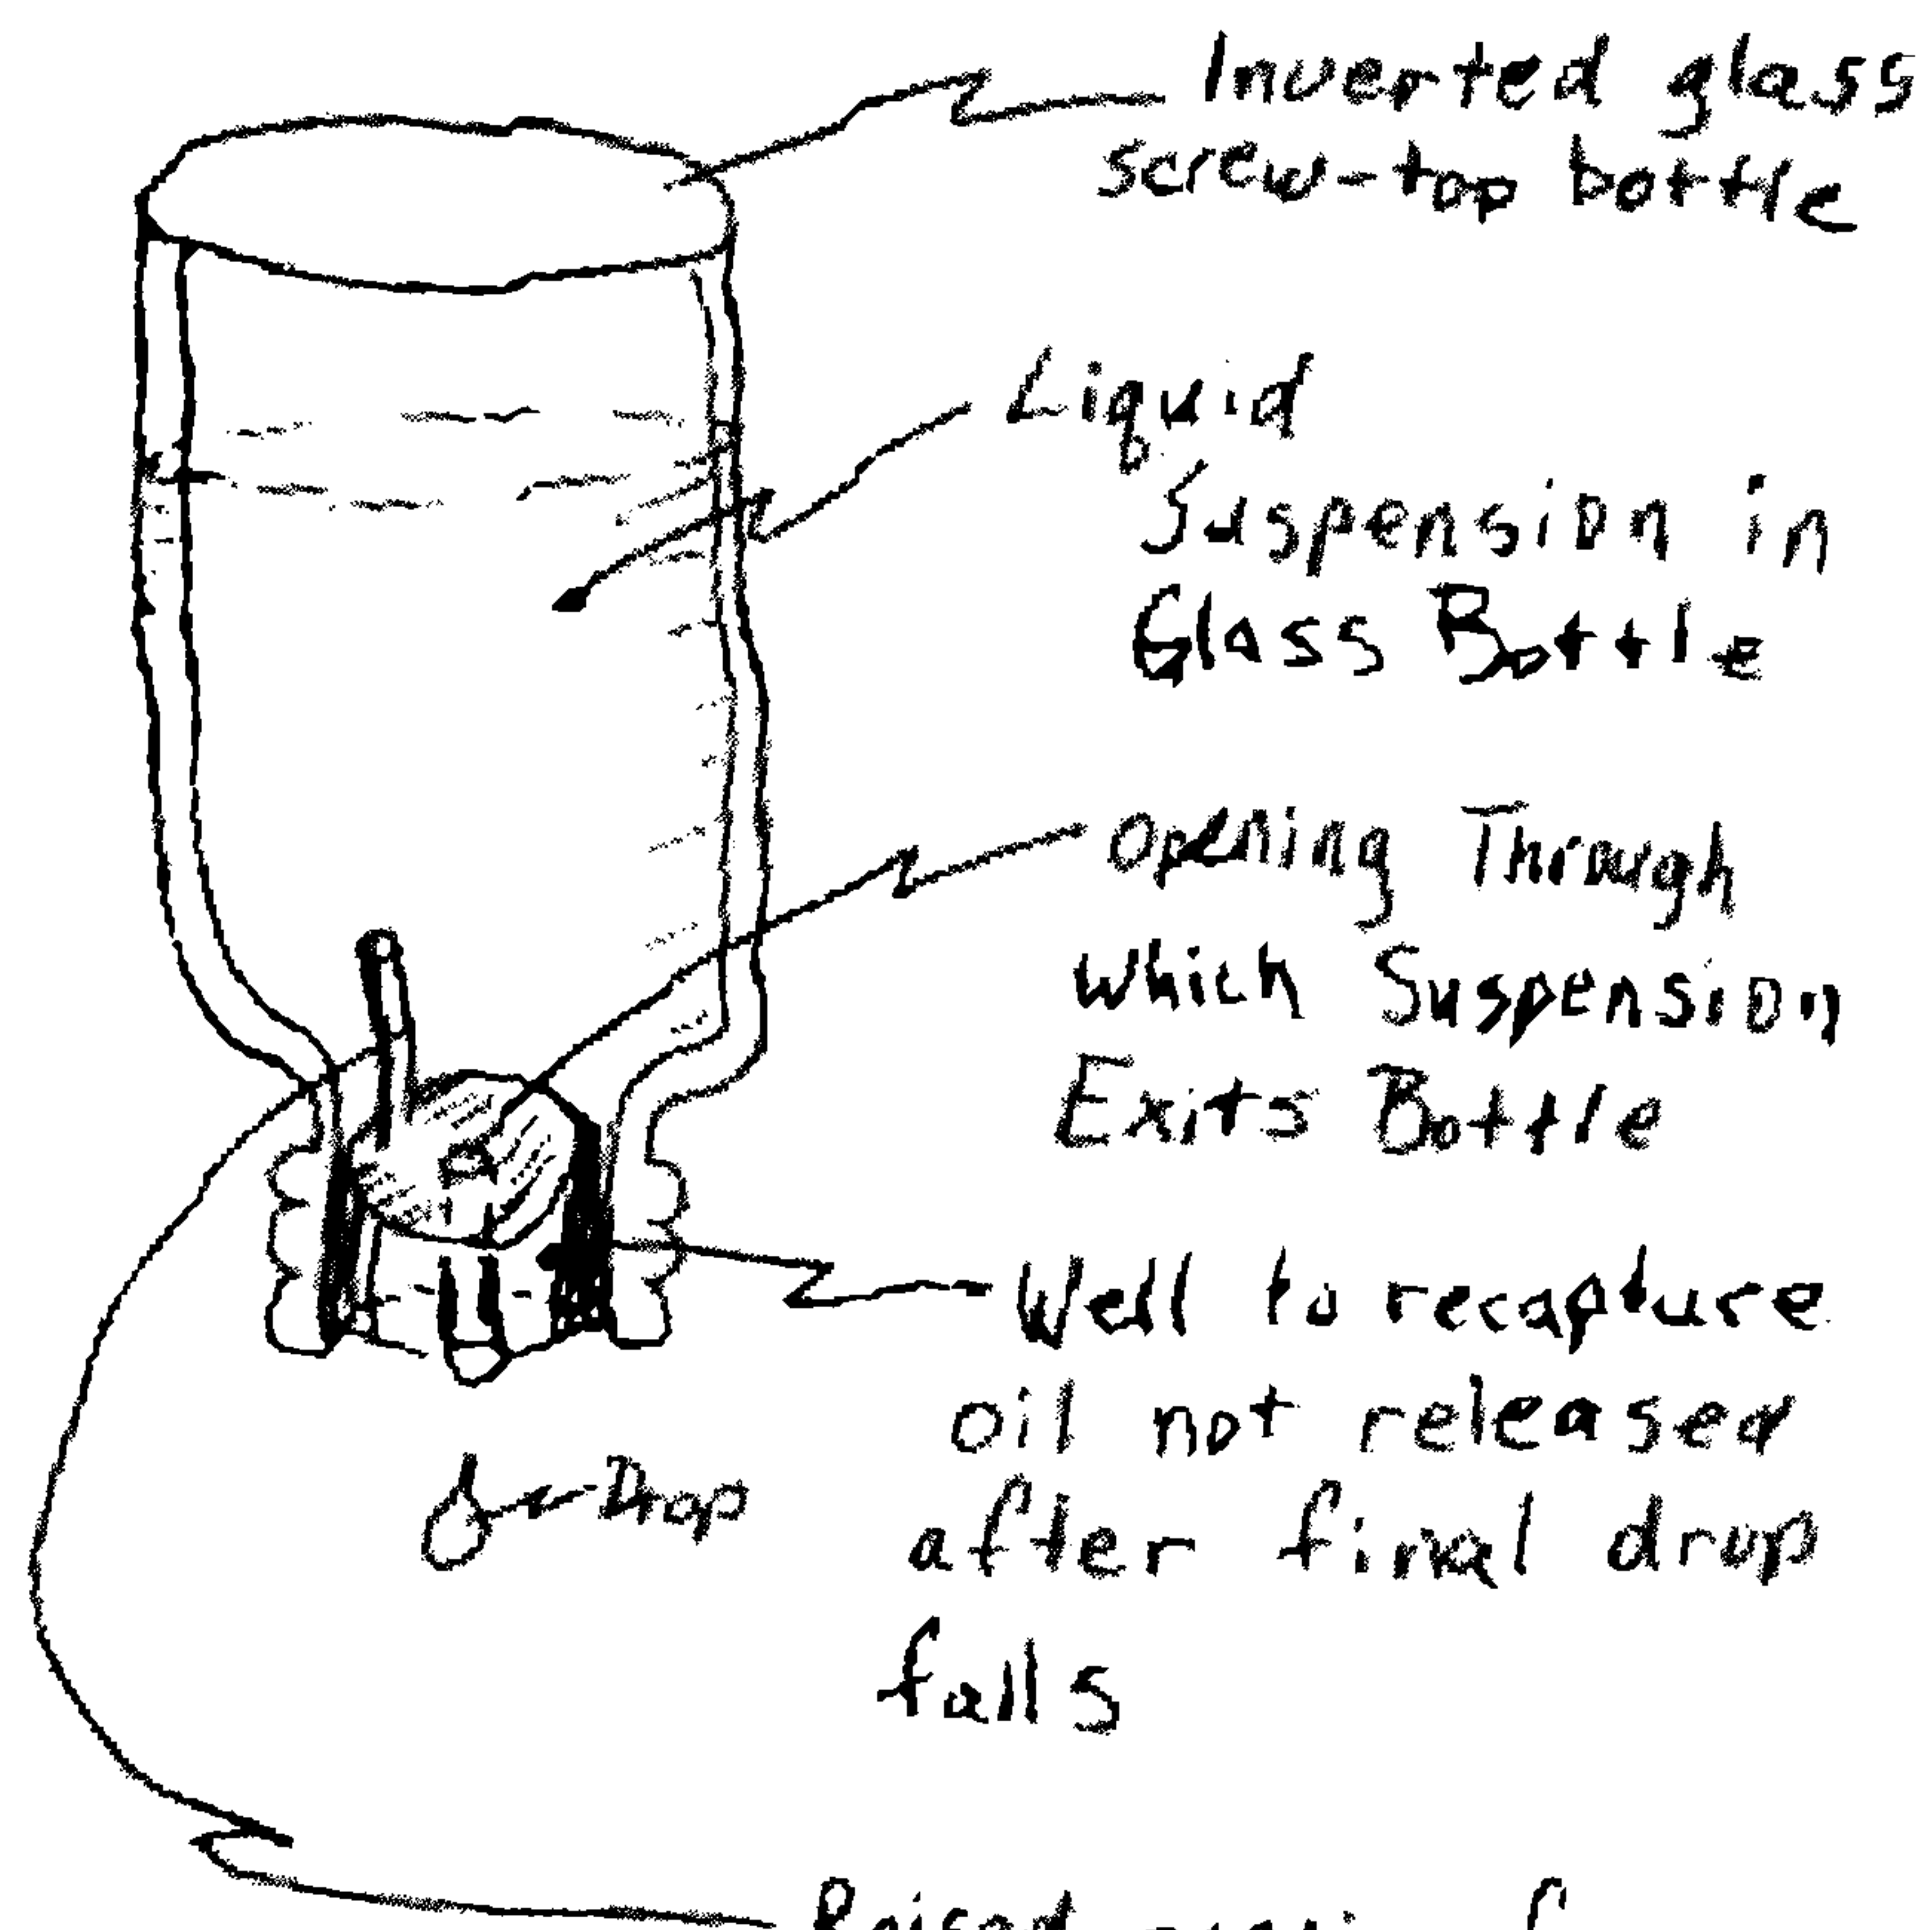 Inverted glass
screw-top bottle
Liquid
Suspension in
Glass Bottle
Opening Through
which Suspension
Exits Bottle
Well to recapture
oil not released
after final drop
falls
Drop
Raised